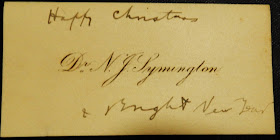 Happy Christmas
Dr. N. J. Symington
& Bright New Year